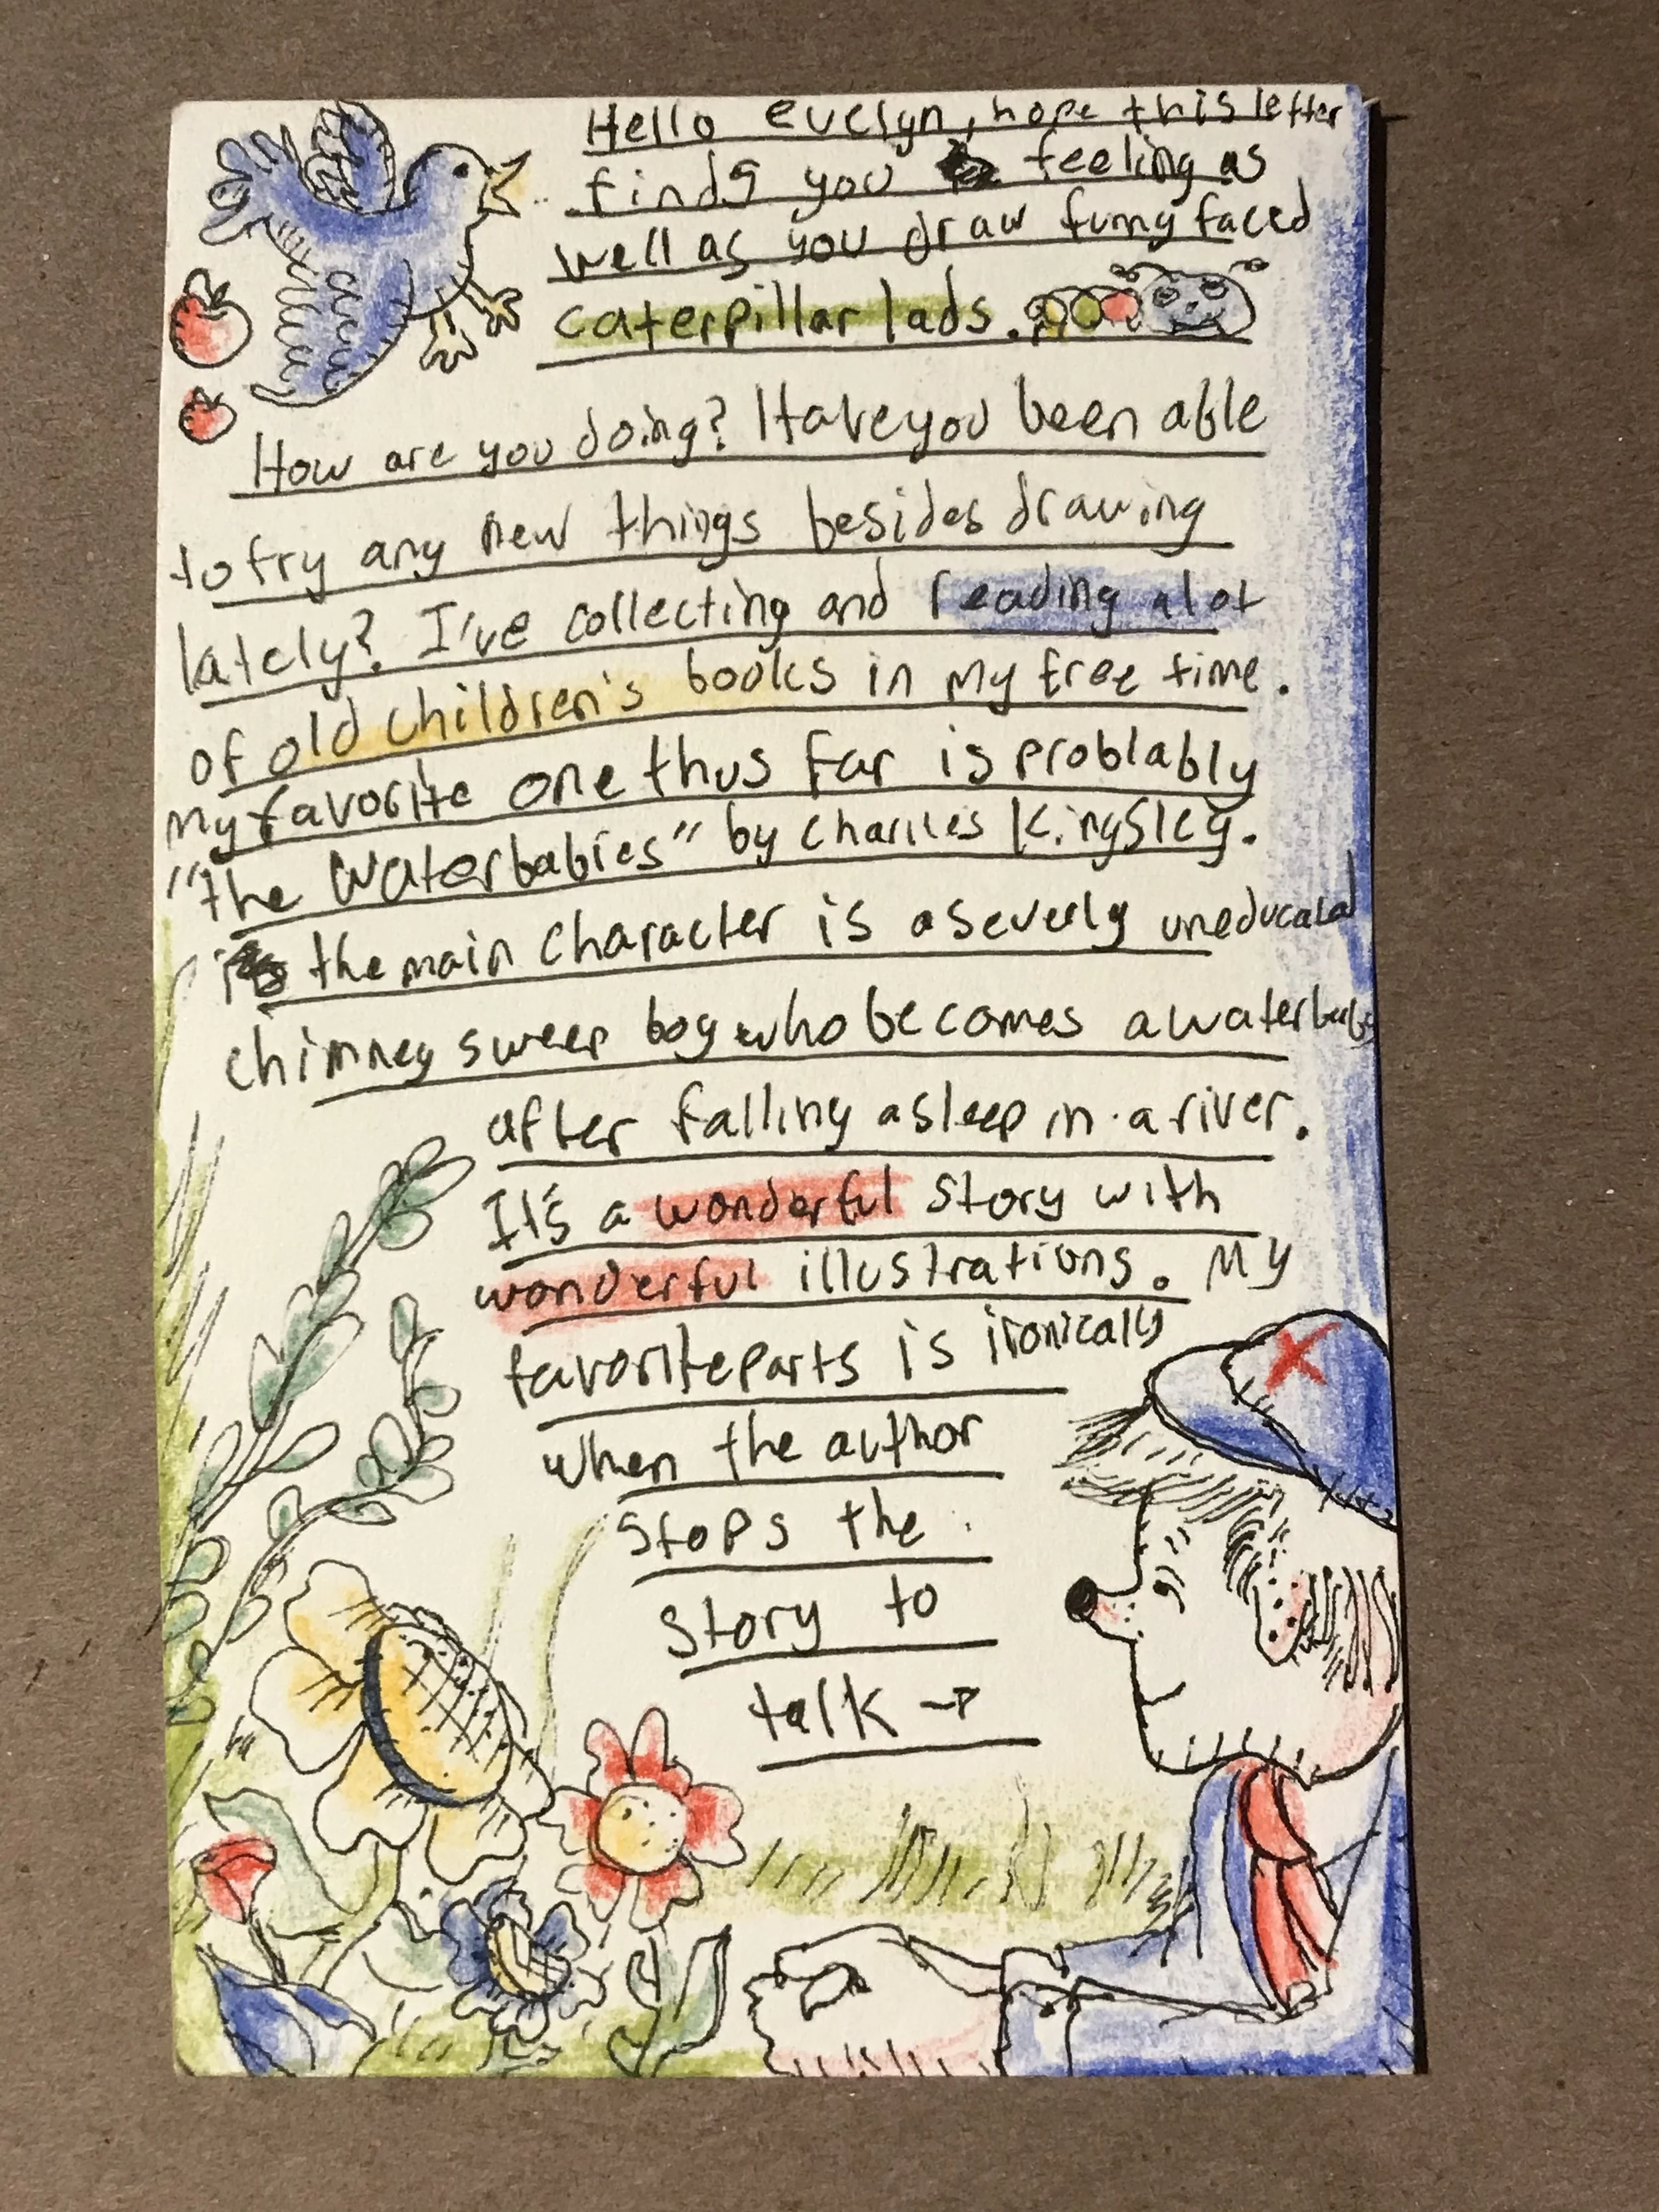 Hello evelyn, hope this letter
finds you feeling as
well as you draw funny faced
caterpillar lads.
How are you doing? Have you been able
to try any new things besides drawing
lately? I've collecting and reading alot
of old children's books in my free time.
My favorite one thus far is problably
"the Waterbabies" by Charles Kingsley.
the main character is a severly uneducated
chimney sweep boy who becomes a waterbaby
after falling asleep in a river.
It's a wonderful story with
wonderful illustrations. My
favorite parts is ironically
when the author
stops the
story to
talk →